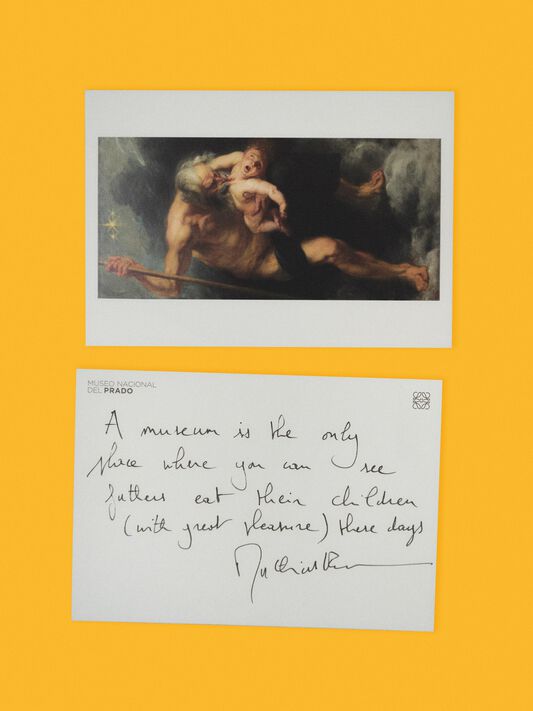 MUSEO NACIONAL
DEL PRADO
A museum is the only
place where you can see
fathers eat their children
(with great pleasure) these days